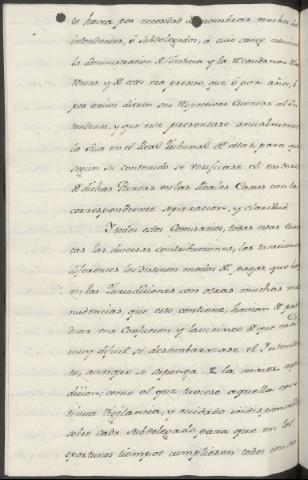 te havia por necesidad de nombrar muchos Sub
intendentes, ó Subdelegados, á cuio cargo estuviese
la administracion de Justicia y la Recaudacion de
y de estos era preciso, que ó por años, ó
por tercios diesen sus respectivas cuentas al In
tendente, y que este presentase anualmente
la suia en el Real Tribunal de ellas, para que
segun su contenido se verificase el entero
de dichas en las Reales Caxas con la
correspondiente separacion, y claridad.
Y todos estos Comisarios, todas estas Cuen
tas las diversas contribuciones, las tasaciones
diferentes los distintos modos de pagar que hai
en las Jurisdiciones con otras muchas me
nudencias, que esto contiene, havian de pro
ducir una Confusion, y lavirinto de que era
muy dificil se desembarazase el Intenden
te, aunque se suponga de la maior expe
dicion; como el que tuviese aquella con
tinua vigilancia, y cuidado indispensable
sobre cada Subdelegado para que en los
oportunos tiempos cumpliesen todos con su